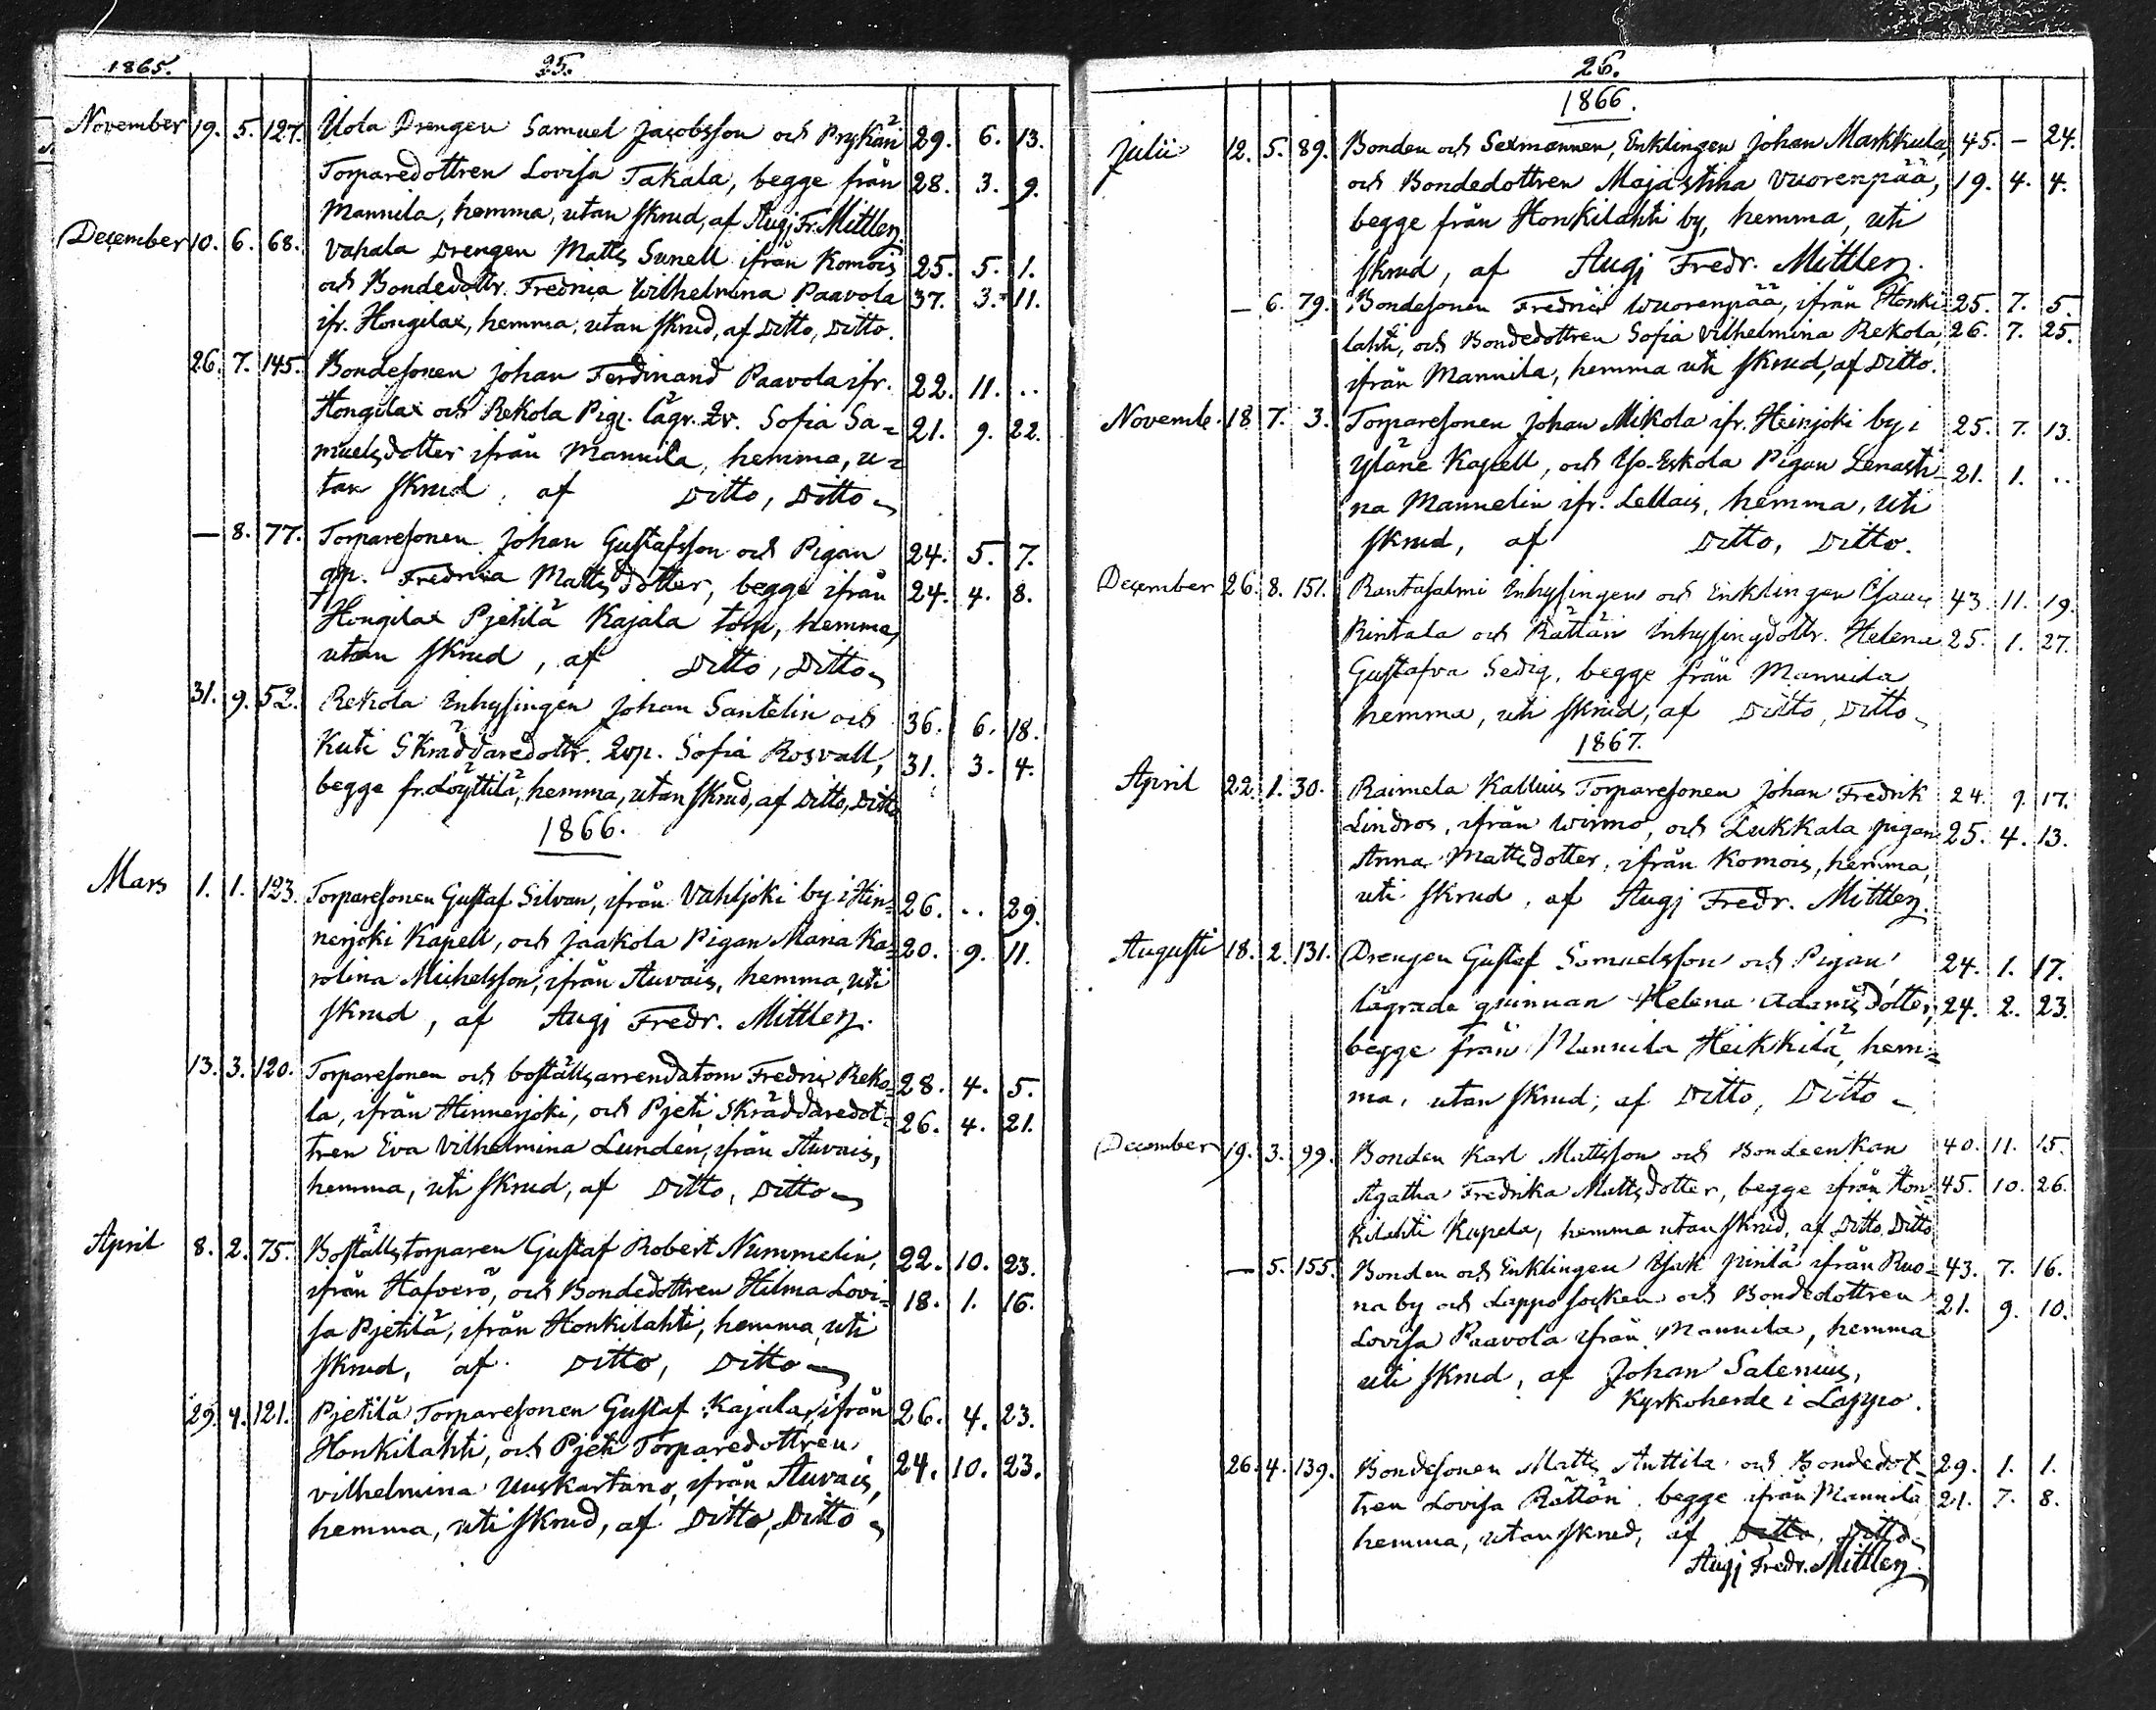 1865.
25.
November 19. 5. 127. Uola Drengen Samuel Jacobsson och Prykäri 29. 6. 13.
Torparedottren Lovisa Takala, begge från 28. 3. 9.
Mannila, hemma, utan skrud, af Augj Fr. Mittler.
December 10. 6. 68. Vahala Drengen Matts Sunell ifrån Komois 25. 5. 1.
och Bondedottr. Fredrica Wilhelmina Paavola 37. 3. 11.
ifr. Hongilax, hemma, utan skrud, af Ditto, Ditto.
26. 7. 145. Bondesonen Johan Ferdinand Paavola ifr. 22. 11. ..
Hongilax och Rekola Pig. lägr. Qv. Sofia Sa= 21. 9. 22.
muelsdotter ifrån Mannila, hemma, u=
tan skrud, af Ditto, Ditto
— 8. 77. Torparesonen Johan Gustafsson och Pigan 24. 5. 7.
qvp. Fredrica Mattsdotter, begge ifrån 24. 4. 8.
Hongilax Pjetilä Kajala torp, hemma,
utan skrud, af Ditto, Ditto
31. 9. 52. Rekola Inhysingen Johan Santelin och 36. 6. 18.
Kuti Skräddaredottr. Qvp. Sofia Rosvall, 31. 3. 4.
begge fr. Löyttilä, hemma, utan skrud, af Ditto, Ditto
1866.
Mars 1. 1. 123. Torparesonen Gustaf Silvan, ifrån Vahljoki by i Hin= 26. .. 29.
nerjoki Kapell, och Jaakola Pigan Maria Ka= 20. 9. 11.
rolina Michelsson, ifrån Auvais, hemma, uti
skrud, af Augj Fredr. Mittler.
13. 3. 120. Torparesonen och boställsarrendatorn Fredric Reko= 28. 4. 5.
la, ifrån Hinnerjoki, och Pjeti Skräddaredot= 26. 4. 21.
tren Eva Vilhelmina Lunden, ifrån Auvais,
hemma, uti skrud, af Ditto, Ditto
April 8. 2. 75. Boställstorparen Gustaf Robert Nummelin, 22. 10. 23.
ifrån Hafverö, och Bondedottren Hilma Lovi= 18. 1. 16.
sa Pjetilä, ifrån Honkilahti, hemma, uti
skrud, af Ditto, Ditto
29. 4. 121. Pjetilä Torparesonen Gustaf Kajala, ifrån 26. 4. 23.
Honkilahti, och Pjeti Torparedottren 24. 10. 23.
Vilhelmina Uuskartano, ifrån Auvais,
hemma, uti skrud, af Ditto, Ditto
26.
1866.
Julii 12. 5. 89. Bonden och Sexmannen, Enklingen Johan Markkula, 45. — 24.
och Bondedottren Maja Stina Vuorenpää, 19. 4. 4.
begge från Honkilahti by, hemma, uti
skrud, af Augj Fredr. Mittler.
— 6. 79. Bondesonen Fredric Wuorenpää, ifrån Honki 25. 7. 5.
lahti, och Bondedottren Sofia Vilhelmina Rekola, 26. 7. 25.
ifrån Mannila, hemma uti skrud, af Ditto.
Novemb. 18. 7. 3. Torparesonen Johan Mikola ifr. Heinjoki by i 25. 7. 13.
Yläne Kapell, och Yso-Eskola Pigan Lenasti= 21. 1. ..
na Mannelin ifr. Lellais, hemma, uti
skrud, af Ditto, Ditto.
December 26. 8. 151. Rantasalmi Inhysingen och Enklingen Isaac 43. 11. 19.
Rintala och Rättäri Inhysingdottr. Helena 25. 1. 27.
Gustafva Sedig, begge från Mannila
hemma, uti skrud, af Ditto, Ditto
1867.
April 22. 1. 30. Raimela Kalluis Torparesonen Johan Fredrik 24. 9. 17.
Lindros, ifrån Wirmo, och Lukkala pigan 25. 4. 13.
Anna Mattsdotter, ifrån Komois, hemma,
uti skrud, af Augj Fredr. Mittler.
Augusti 18. 2. 131. Drengen Gustaf Samuelsson och Pigan, 24. 1. 17.
lägrade qvinnan Helena Adamsdotter, 24. 2. 23.
begge från Mannila Heikkilä, hem=
ma, utan skrud, af Ditto, Ditto
December 19. 3. 99. Bonden Karl Mattsson och Bondeenkan 40. 11. 15.
Agatha Fredrika Mattsdotter, begge ifrån Hon= 45. 10. 26.
kilahti Kapela, hemma utan skrud, af Ditto, Ditto
— 5. 155. Bonden och Enklingen Isak Pirilä ifrån Ruo= 43. 7. 16.
na by och Lappo socken och Bondedottren 21. 9. 10.
Lovisa Paavola ifrån Mannila, hemma
uti skrud, af Johan Salenius,
Kyrkoherde i Lappo.
26. 4. 139. Bondesonen Matts Anttila och Bondedot= 29. 1. 1.
tren Lovisa Rättäri begge ifrån Mannila 21. 7. 8.
hemma, utan skrud, af Ditto, Ditto
Augj Fredr. Mittler